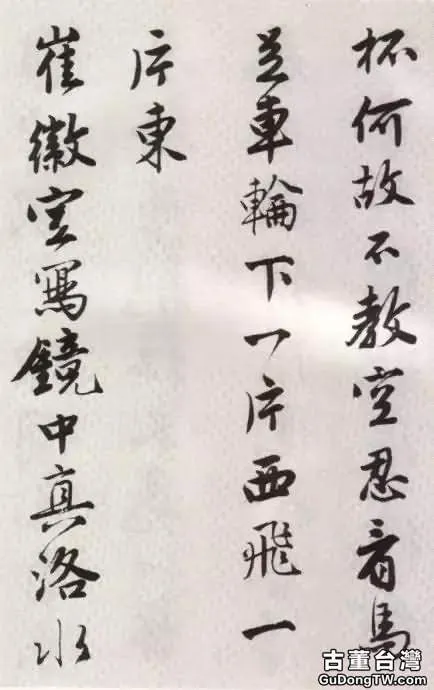 杯何故不教空忍看馬
足車輪下一片西飛一
片東
崔徽空寫鏡中真洛水
古董台灣
GuDongTW.com